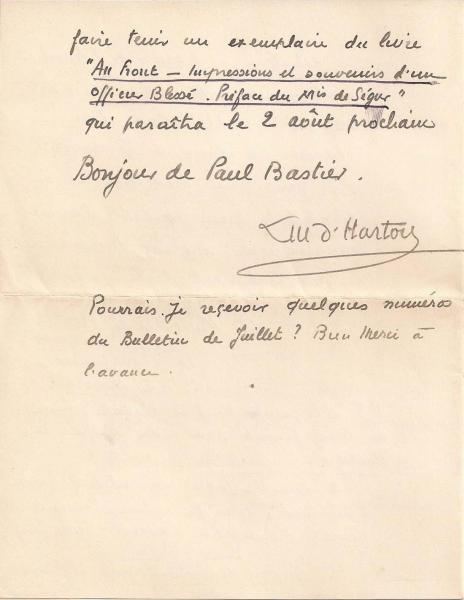 faire tenir un exemplaire du livre
"Au Front - Impressions et souvenirs d'un
officier Blessé. Préface du Mis de Ségur"
qui paraîtra le 2 août prochain
Bonjour de Paul Bastier.
d'Hartoy
Pourrais-je reçevoir quelques numéros
du Bulletin de Juillet ? Bien Merci à
l'avance.